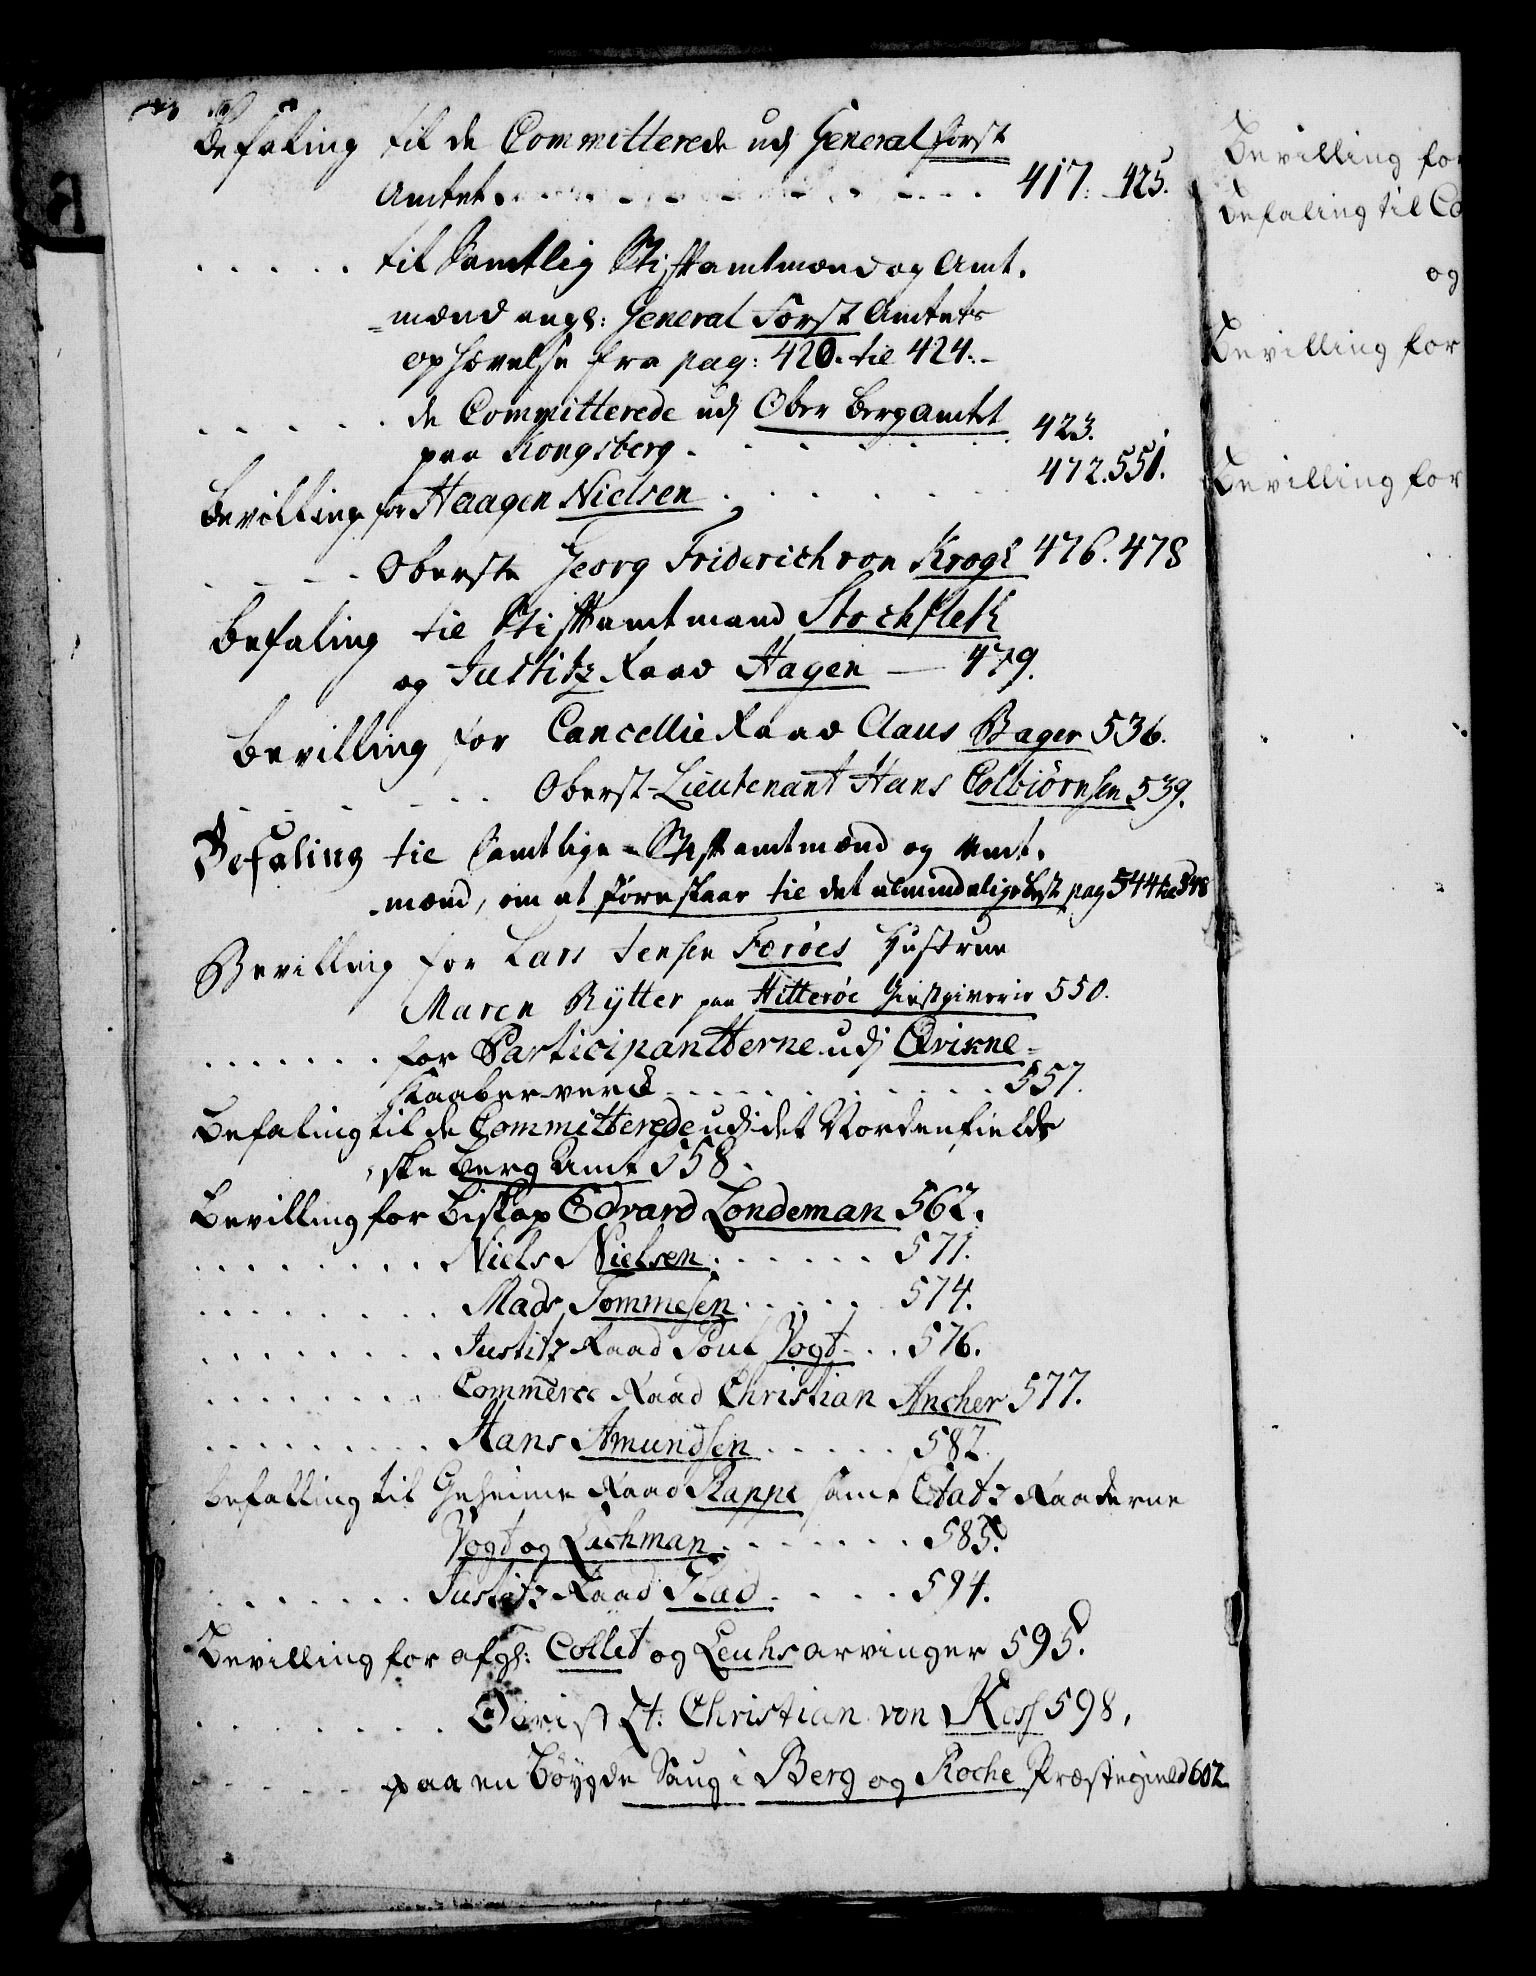 Befaling til de Committerede udj General forst
Amtet. . . . . . . . . . . . 417. 425.
. . . . . til Samtlig Stiftamtmænd og Amt.
=mænd angl: General Forst Amtets
ophævelse fra pag: 420. til 424. -
. . . . . de Committerede udj Ober Berg Amtet
paa Kongsberg. . . . . . . 423.
Bevilling for Haagen Nielsen . . . . . . 472. 551.
. . . . Oberste Georg Friderich von Krogh 476. 478
Befaling til Stiftamtmand Stochfleth
og Justitz Raad Hagen — 479.
Bevilling for Cancellie Raad Claus Bager 536.
. . . . . . Oberst-Lieutenant Hans Colbiørnsen 539.
Befaling til Samtlige Stiftamtmænd og Amt.
-mænd, om at pag 544 til 548
Bevilling for Lars Jensen Færøes Hustrue
Maren Rÿtter paa Hitterøe Giestgiverie 550.
. . . . . . . for Participantterne udj Qvikne=
Kaaber-verck . . . . . . . . . . . 557.
Befaling til de Committerede udi det Nordenfields
ske Berg Amt 558.
Bevilling for Biskop Edvard Londeman 562.
. . . . . . . . Niels Nielsen . . . . . . 571.
. . . . . . . . Mads Tommesen . . . . . 574.
. . . . . . . . Justitz Raad Poul Vogt . . . 576.
. . . . . . . . Commerce Raad Christian Ancher 577.
. . . . . . . . . Hans Amundsen . . . . . 582.
Befalling til Geheime Raad Rappe samt Etatz Raaderne
Vogt og Lachman . . . . . . . 585.
. . . . . . . Justitz Raad . . . . 594.
Bevilling for afgl: Collet og Leuhs arvinger 595.
. . . . . . . . Obrist Lt: Christian von Koss 598.
. . . . . . paa en Böygde Saug i Berg og Rocke Præstegield 602
Bevilling for
Befaling til Co
og
Bevilling for
Bevilling for